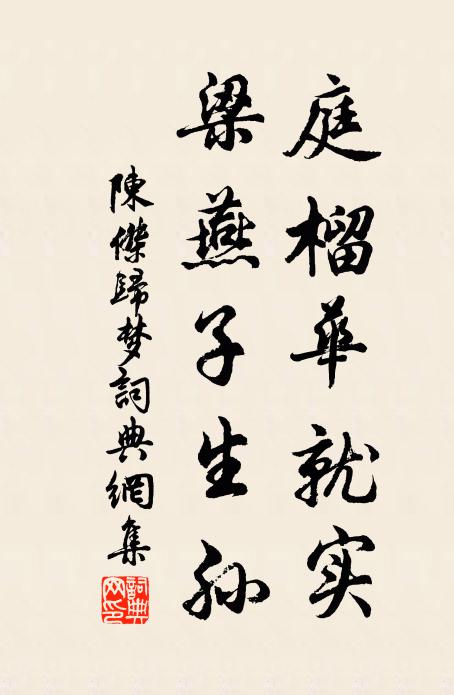 庭榴華就实
梁燕子生孙
陳傑歸梦詞典網集
詞典网印